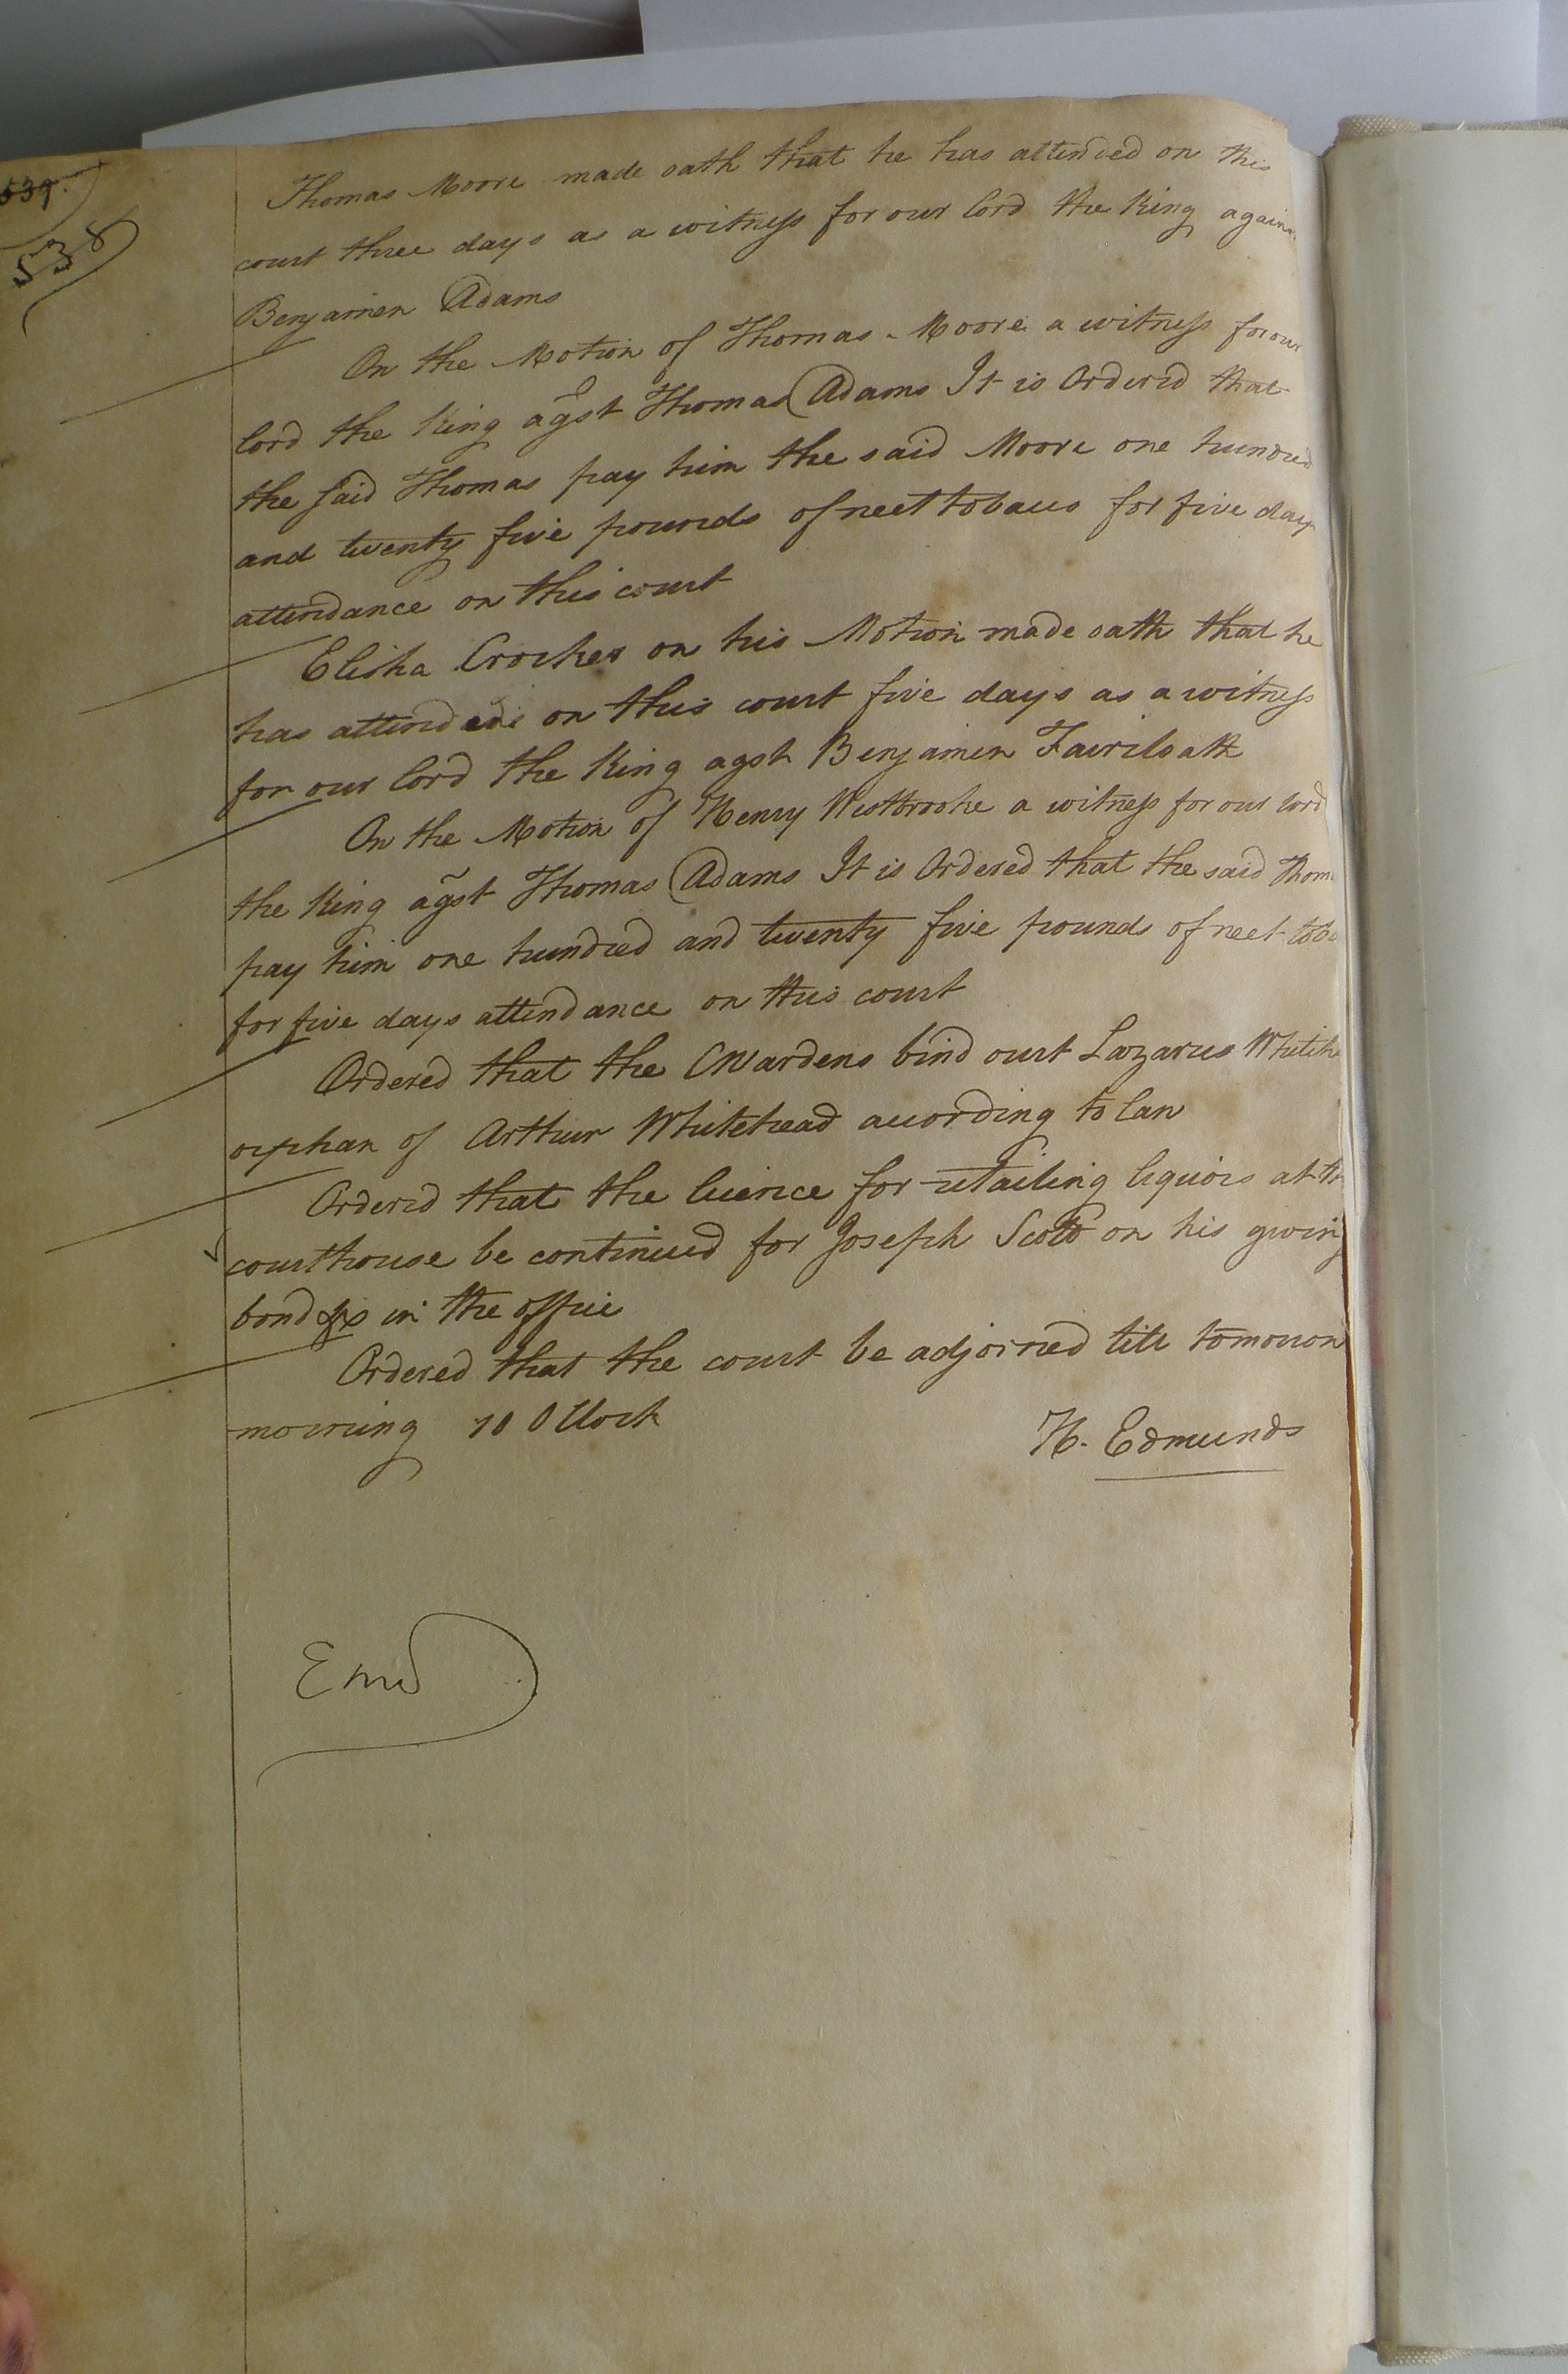 539.
538
Thomas Moore made oath that he has attended on this
court three days as a witness for our lord the King again
Benjamen Adams
On the Motion of Thomas Moore a witness for our
lord the King agst Thomas Adams It is Ordered that
the said Thomas pay him the said Moore one hundred
and twenty five pounds of neet tobacco for five days
attendance on this court
Elisha Crocker on his Motion made oath that he
has attended on this court five days as a witness
for our lord the King agst Benjamen
On the Motion of Henry Westbrooke a witness for our lord
the King agst Thomas Adams It is Ordered that the said Thom
pay him one hundred and twenty five pounds of neet toba
for five days attendance on this court
Ordered that the CWardens bind out Lazarus Whitehe
orphan of Arthur Whitehead according to law
Ordered that the licence for retailing liquors at th
courthouse be continued for Joseph Scott on his giving
bond &c in the office
Ordered that the court be adjorned till tomorrow
morning 10 OClock
H. Edmunds
End